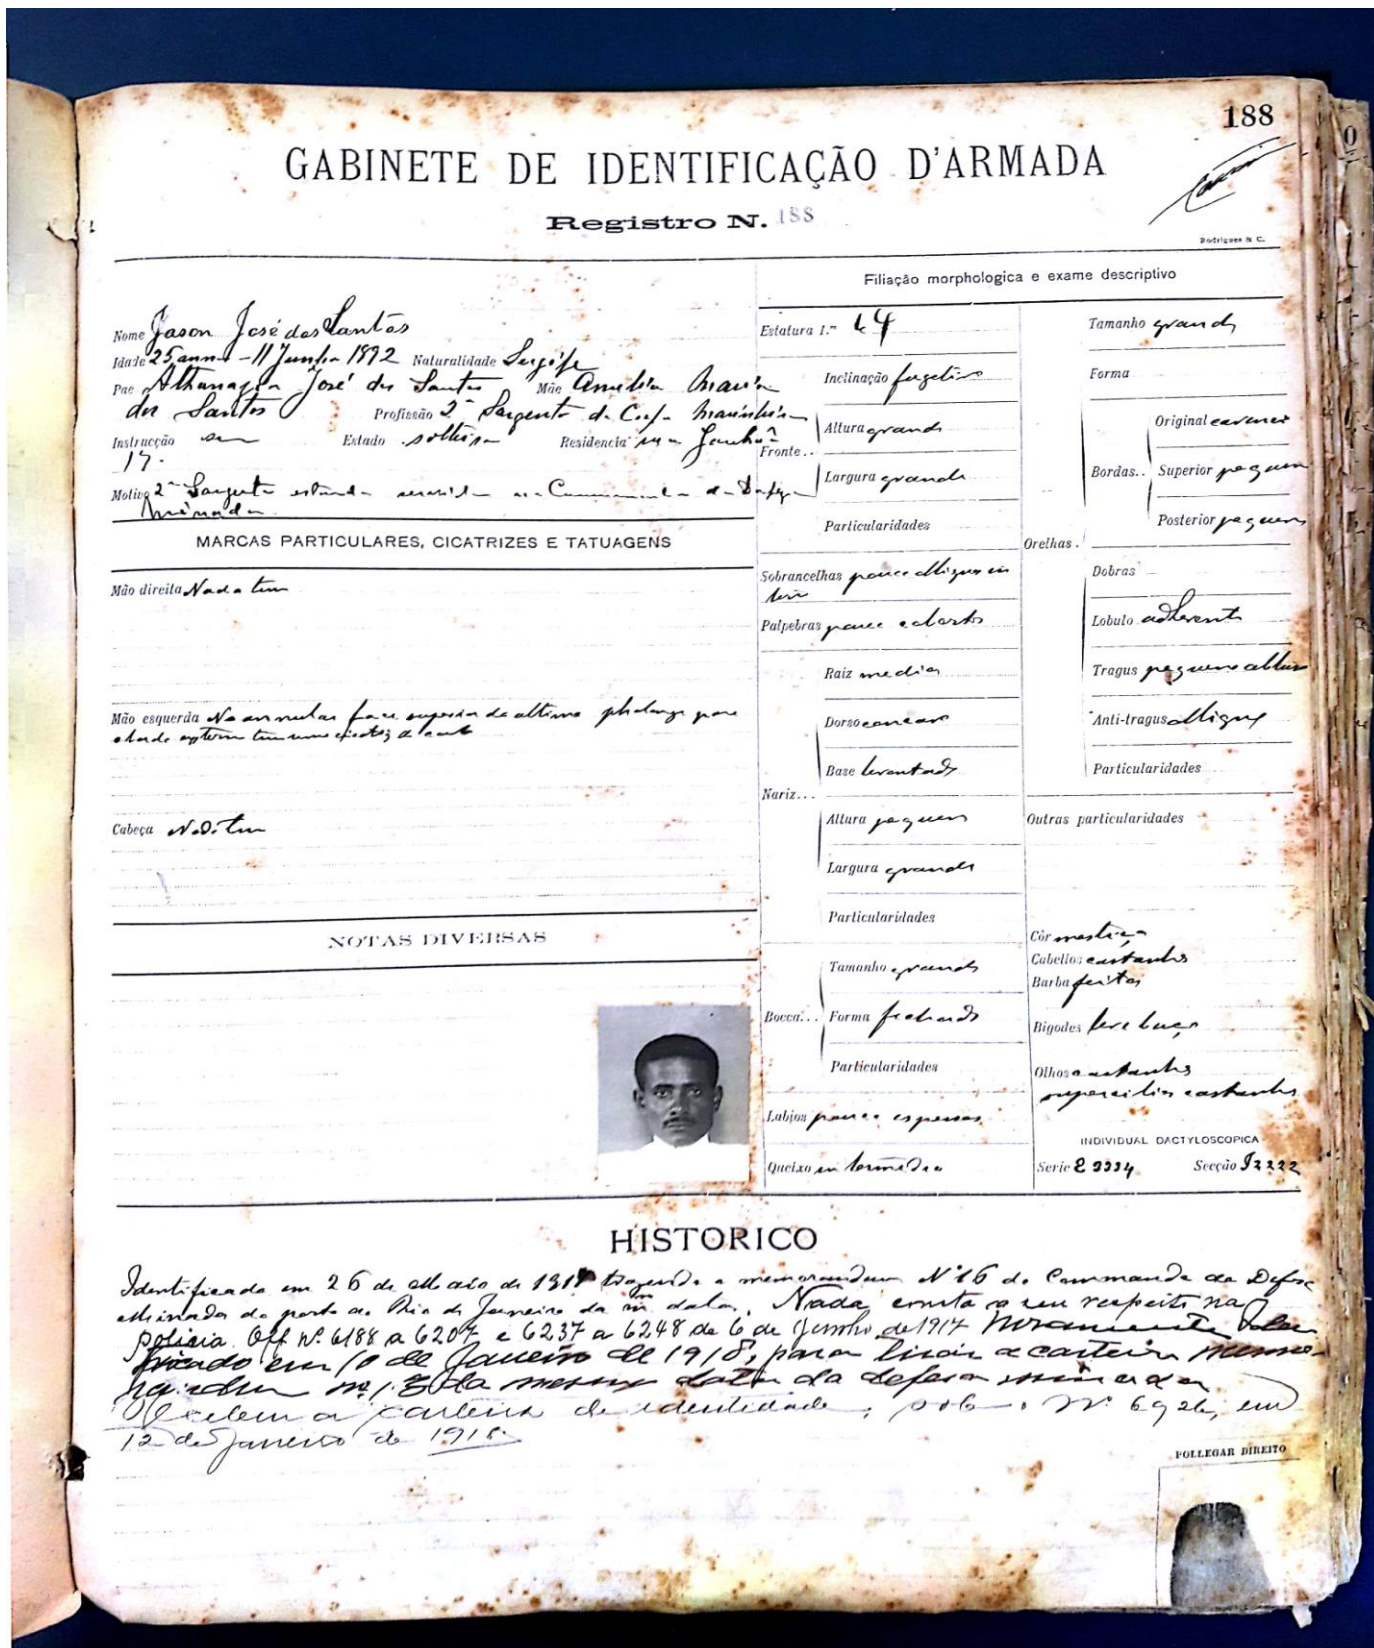 188
GABINETE DE IDENTIFICAÇÃO D'ARMADA
Registro N. 188
Rodrigues & C.
Nome Jason José dos Santos
Idade 25 annos - 11 Junho 1892 Naturalidade Sergipe
Pae José dos Santos Mãe Amelia Maria
dos Santos Profissão 2º Sargento do Corpo Marinheiro
Instrucção sim Estado solteiro Residencia rua
17.
Motivo 2º Sargento estando servindo no da Defesa
Minada
MARCAS PARTICULARES, CICATRIZES E TATUAGENS
Mão direita Nada tem
Mão esquerda No annular face superior da ultima phalange para
o bordo externo tem uma cicatriz de corte
Cabeça Nada tem
NOTAS DIVERSAS
Filiação morphologica e exame descriptivo
Estatura 1.m 64
Fronte..
Inclinação fugetiva
Altura grande
Largura grande
Particularidades
Sobrancelhas pouco
Palpebras pouco abertas
Nariz...
Raiz media
Dorso concavo
Base levantada
Altura pequena
Largura grande
Particularidades
Bocca...
Tamanho grande
Forma fechada
Particularidades
Labios pouco espessos
Queixo intermedio
Orelhas.
Tamanho grande
Forma
Bordas..
Original
Superior pequena
Posterior pequena
Dobras
Lobulo adherente
Tragus pequeno
Anti-tragus obliquo
Particularidades
Outras particularidades
Côr mestiça
Cabellos castanhos
Barba feita
Bigodes leve buço
Olhos castanhos
supercilios castanhos
INDIVIDUAL DACTYLOSCOPICA
Serie E 3334 Secção I2222
HISTORICO
Identificado em 26 de Maio de 1917 trazendo o memorandum Nº 16 do Commando da Defesa
Minada do porto do Rio de Janeiro da mª data. Nada consta a seu respeito na
policia. Off Nº 6188 a 6207 e 6237 a 6248 de 6 de Junho de 1917 Novamente
em 10 de Janeiro de 1918, para tirar a carteira memo-
randum nº 13 da mesma data da defesa minada
Recebeu a carteira de identidade, sob o Nº 6926, em
12 de Janeiro de 1918.
POLLEGAR DIREITO